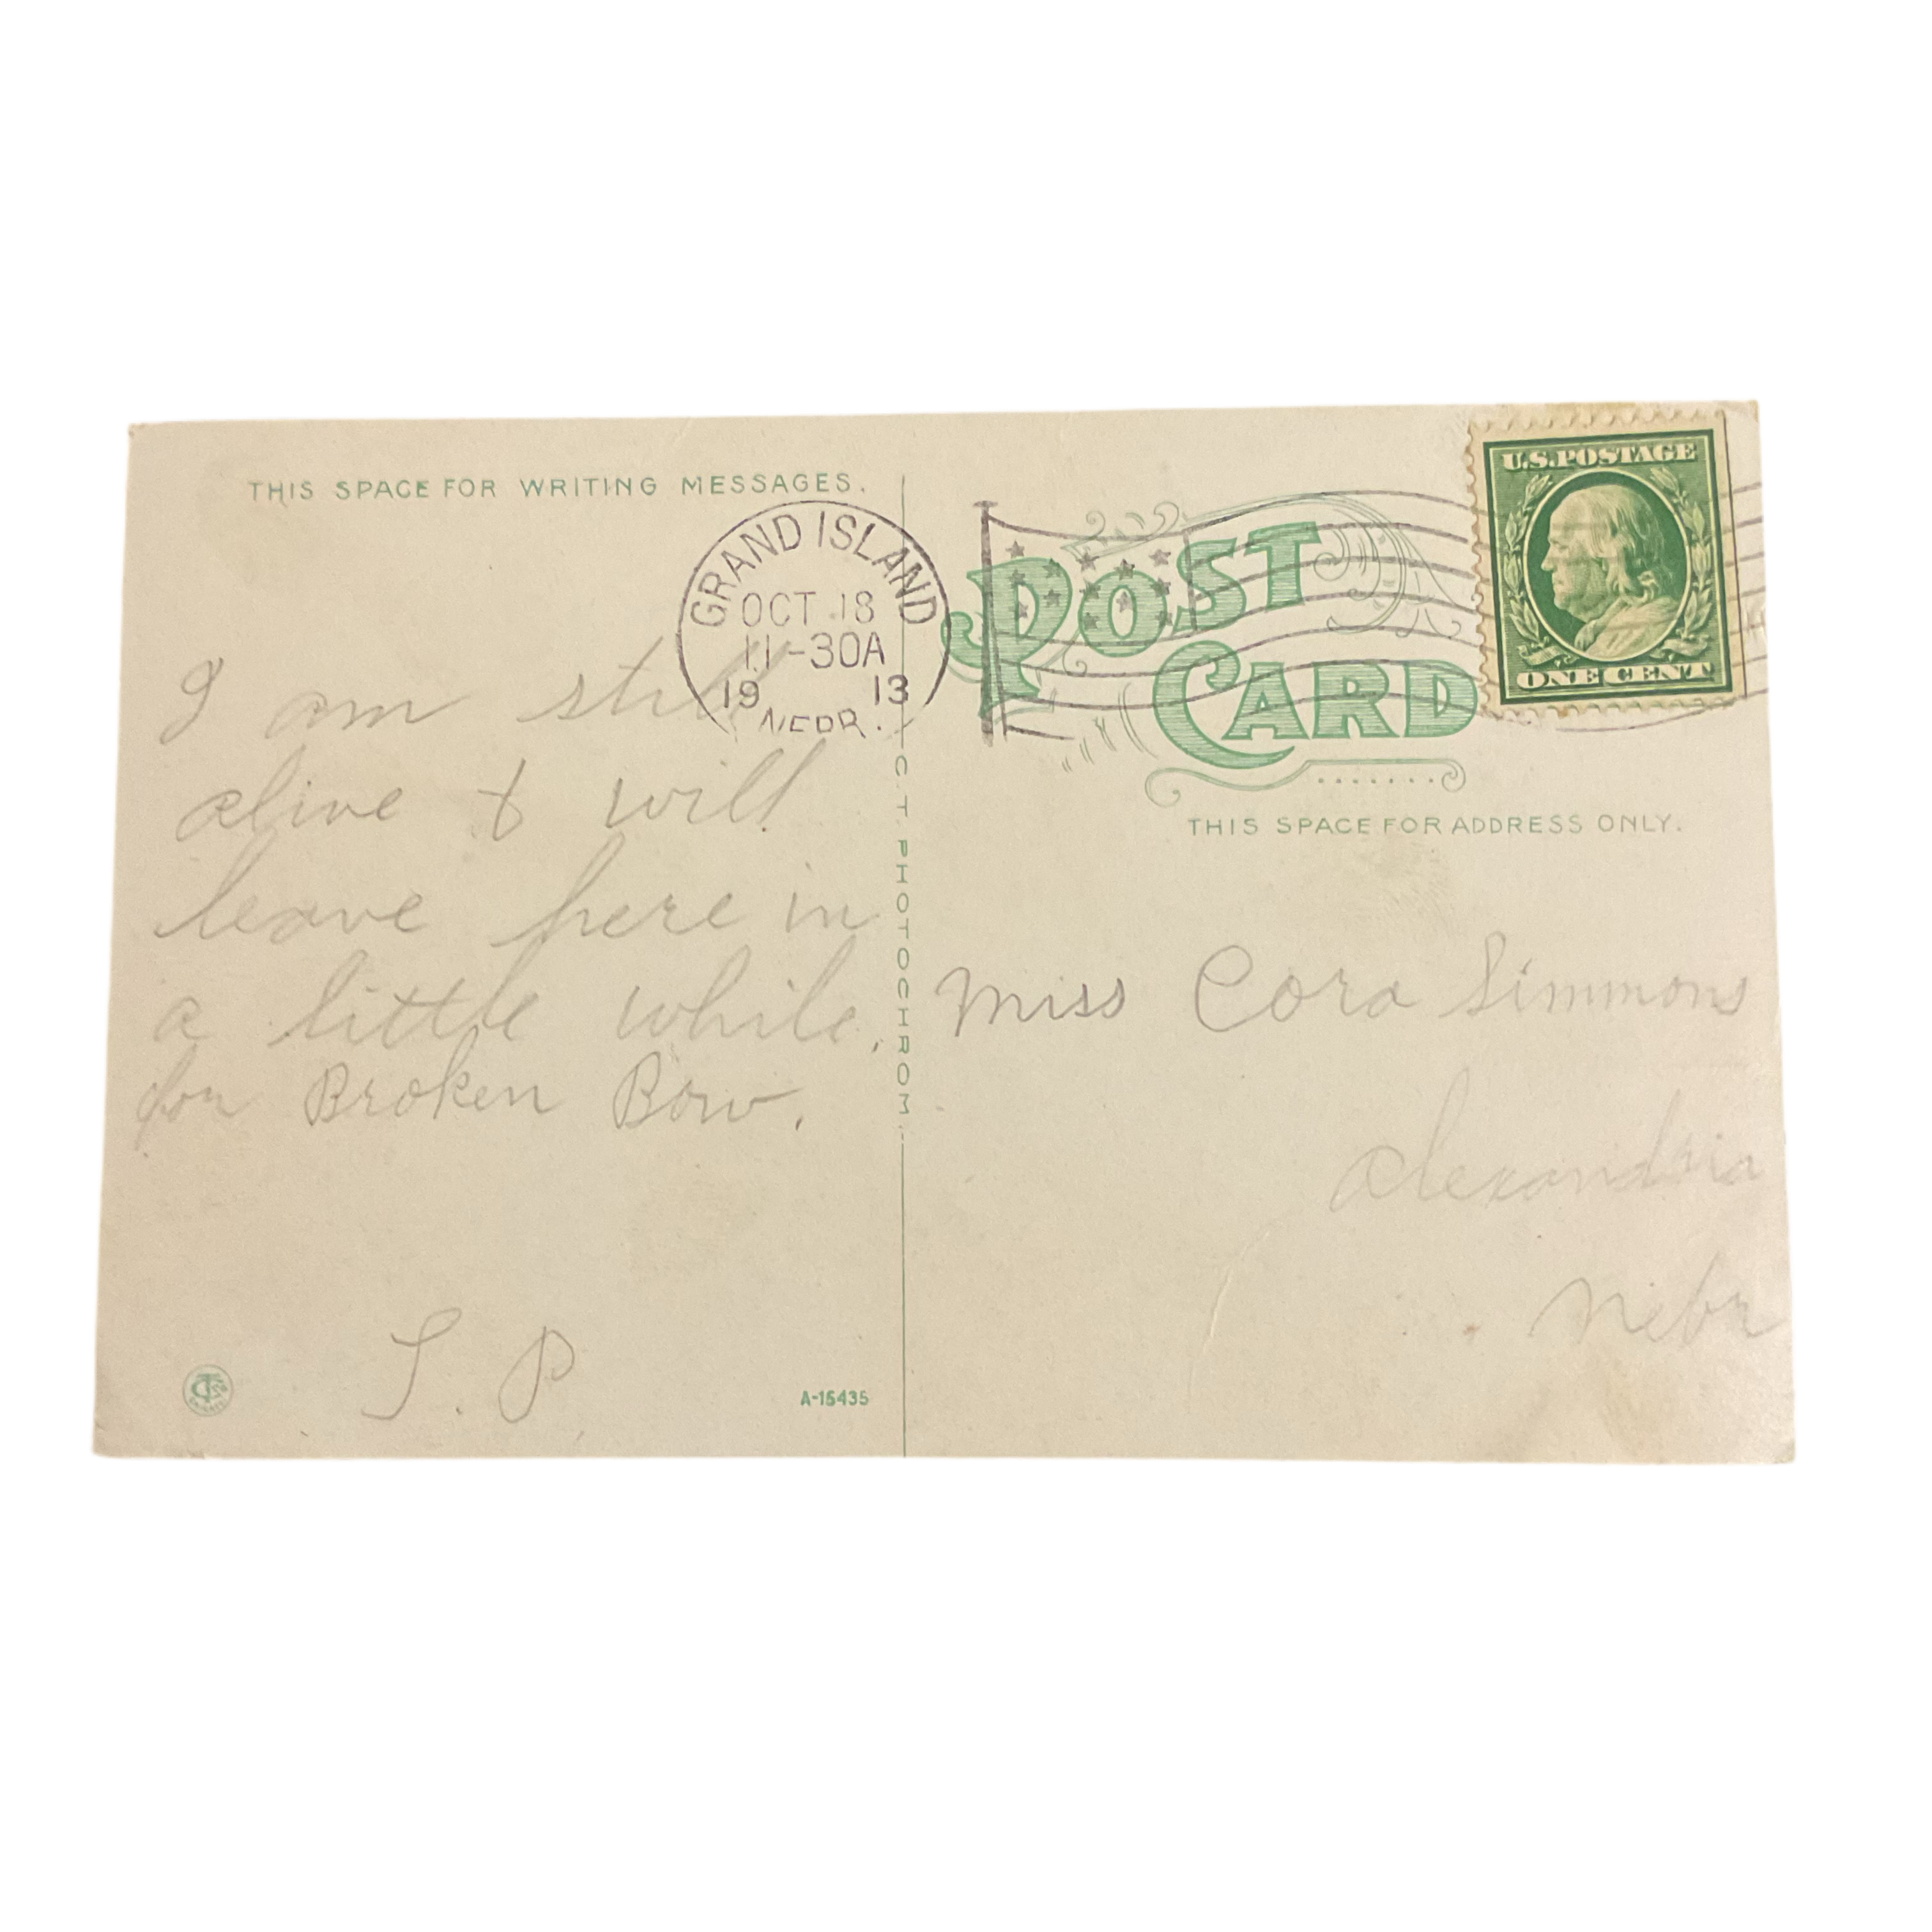 THIS SPACE FOR WRITING MESSAGES.
GRAND ISLAND
OCT 18
11-30A
19 13
NEBR.
I am still
alive & will
leave here in
a little while,
for Broken Bow.
C. T. PHOTOCHROM
A-15435
POST
CARD
U.S. POSTAGE
ONE CENT
THIS SPACE FOR ADDRESS ONLY.
Miss Cora Simmons
Alexandria
Nebr